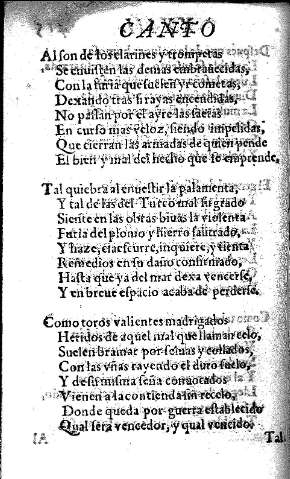 CANTO
Al son de los clarines y trompetas
Se enuisten las demas embrauecidas,
Con la furia que suelen yr cometas,
Dexando tras si rayas encendidas,
No passan por el ayre las saetas
En curso mas veloz, siendo impelidas,
Que cierran las armadas de quien pende
El bien y mal del hecho que se emprende,
Tal quiebra al enuestir la palamenta,
Y tal de las del Turco mal su grado
Siente en las obras biuas la violenta
Furia del plomo y hierro salitrado,
Y haze, inquiere, y tienta
Remedios en su daño confirmado,
Hasta que ya del mar dexa vencerse,
Y en breue espacio acaba de perderse.
Como toros valientes madrigados
Heridos de aquel mal que llaman celo,
Suelen bramar por seluas y collados,
Con las vñas rayendo el duro suelo,
Y desu misma seña conuocados
Vienen a la contienda sin recelo,
Donde queda por guerra establecido
Qual sera vencedor, y qual vencido.
Tal